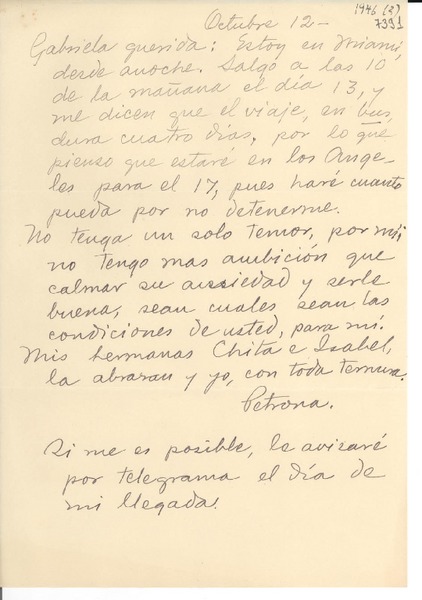 1946 (?)
7391
Octubre 12-
Gabriela querida: Estoy en Miami,
desde anoche. Salgo a las 10
de la mañana el día 13, y
me dicen que el viaje, en bus,
dura cuatro días, por lo que
pienso que estaré en los Ange-
les para el 17, pues haré cuanto
pueda por no detenerme.
No tenga un solo temor, por mí;
no tengo mas ambición que
calmar su ansiedad y serle
buena, sean cuales sean las
condiciones de usted, para mí.
Mis hermanas Chita e Isabel,
la abrazan y yo, con toda ternura.
Petrona.
Si me es posible, le avisaré
por telegrama el día de
mi llegada.